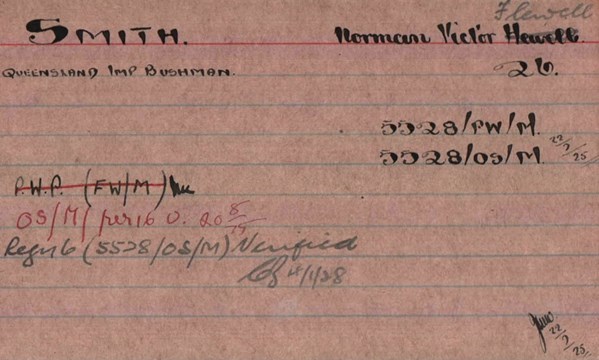 Flewell
SMITH. Norman Victor Hewell.
QUEENSLAND IMP BUSHMAN. 26.
5528/PW/M.
5528/OS/M. 22/7/25
P.W.P. (FW/M)
OS/M/ per 16 v. 20 8/25
Regn 6 (5528/OS/M) Verified
/1/28
22/7/25